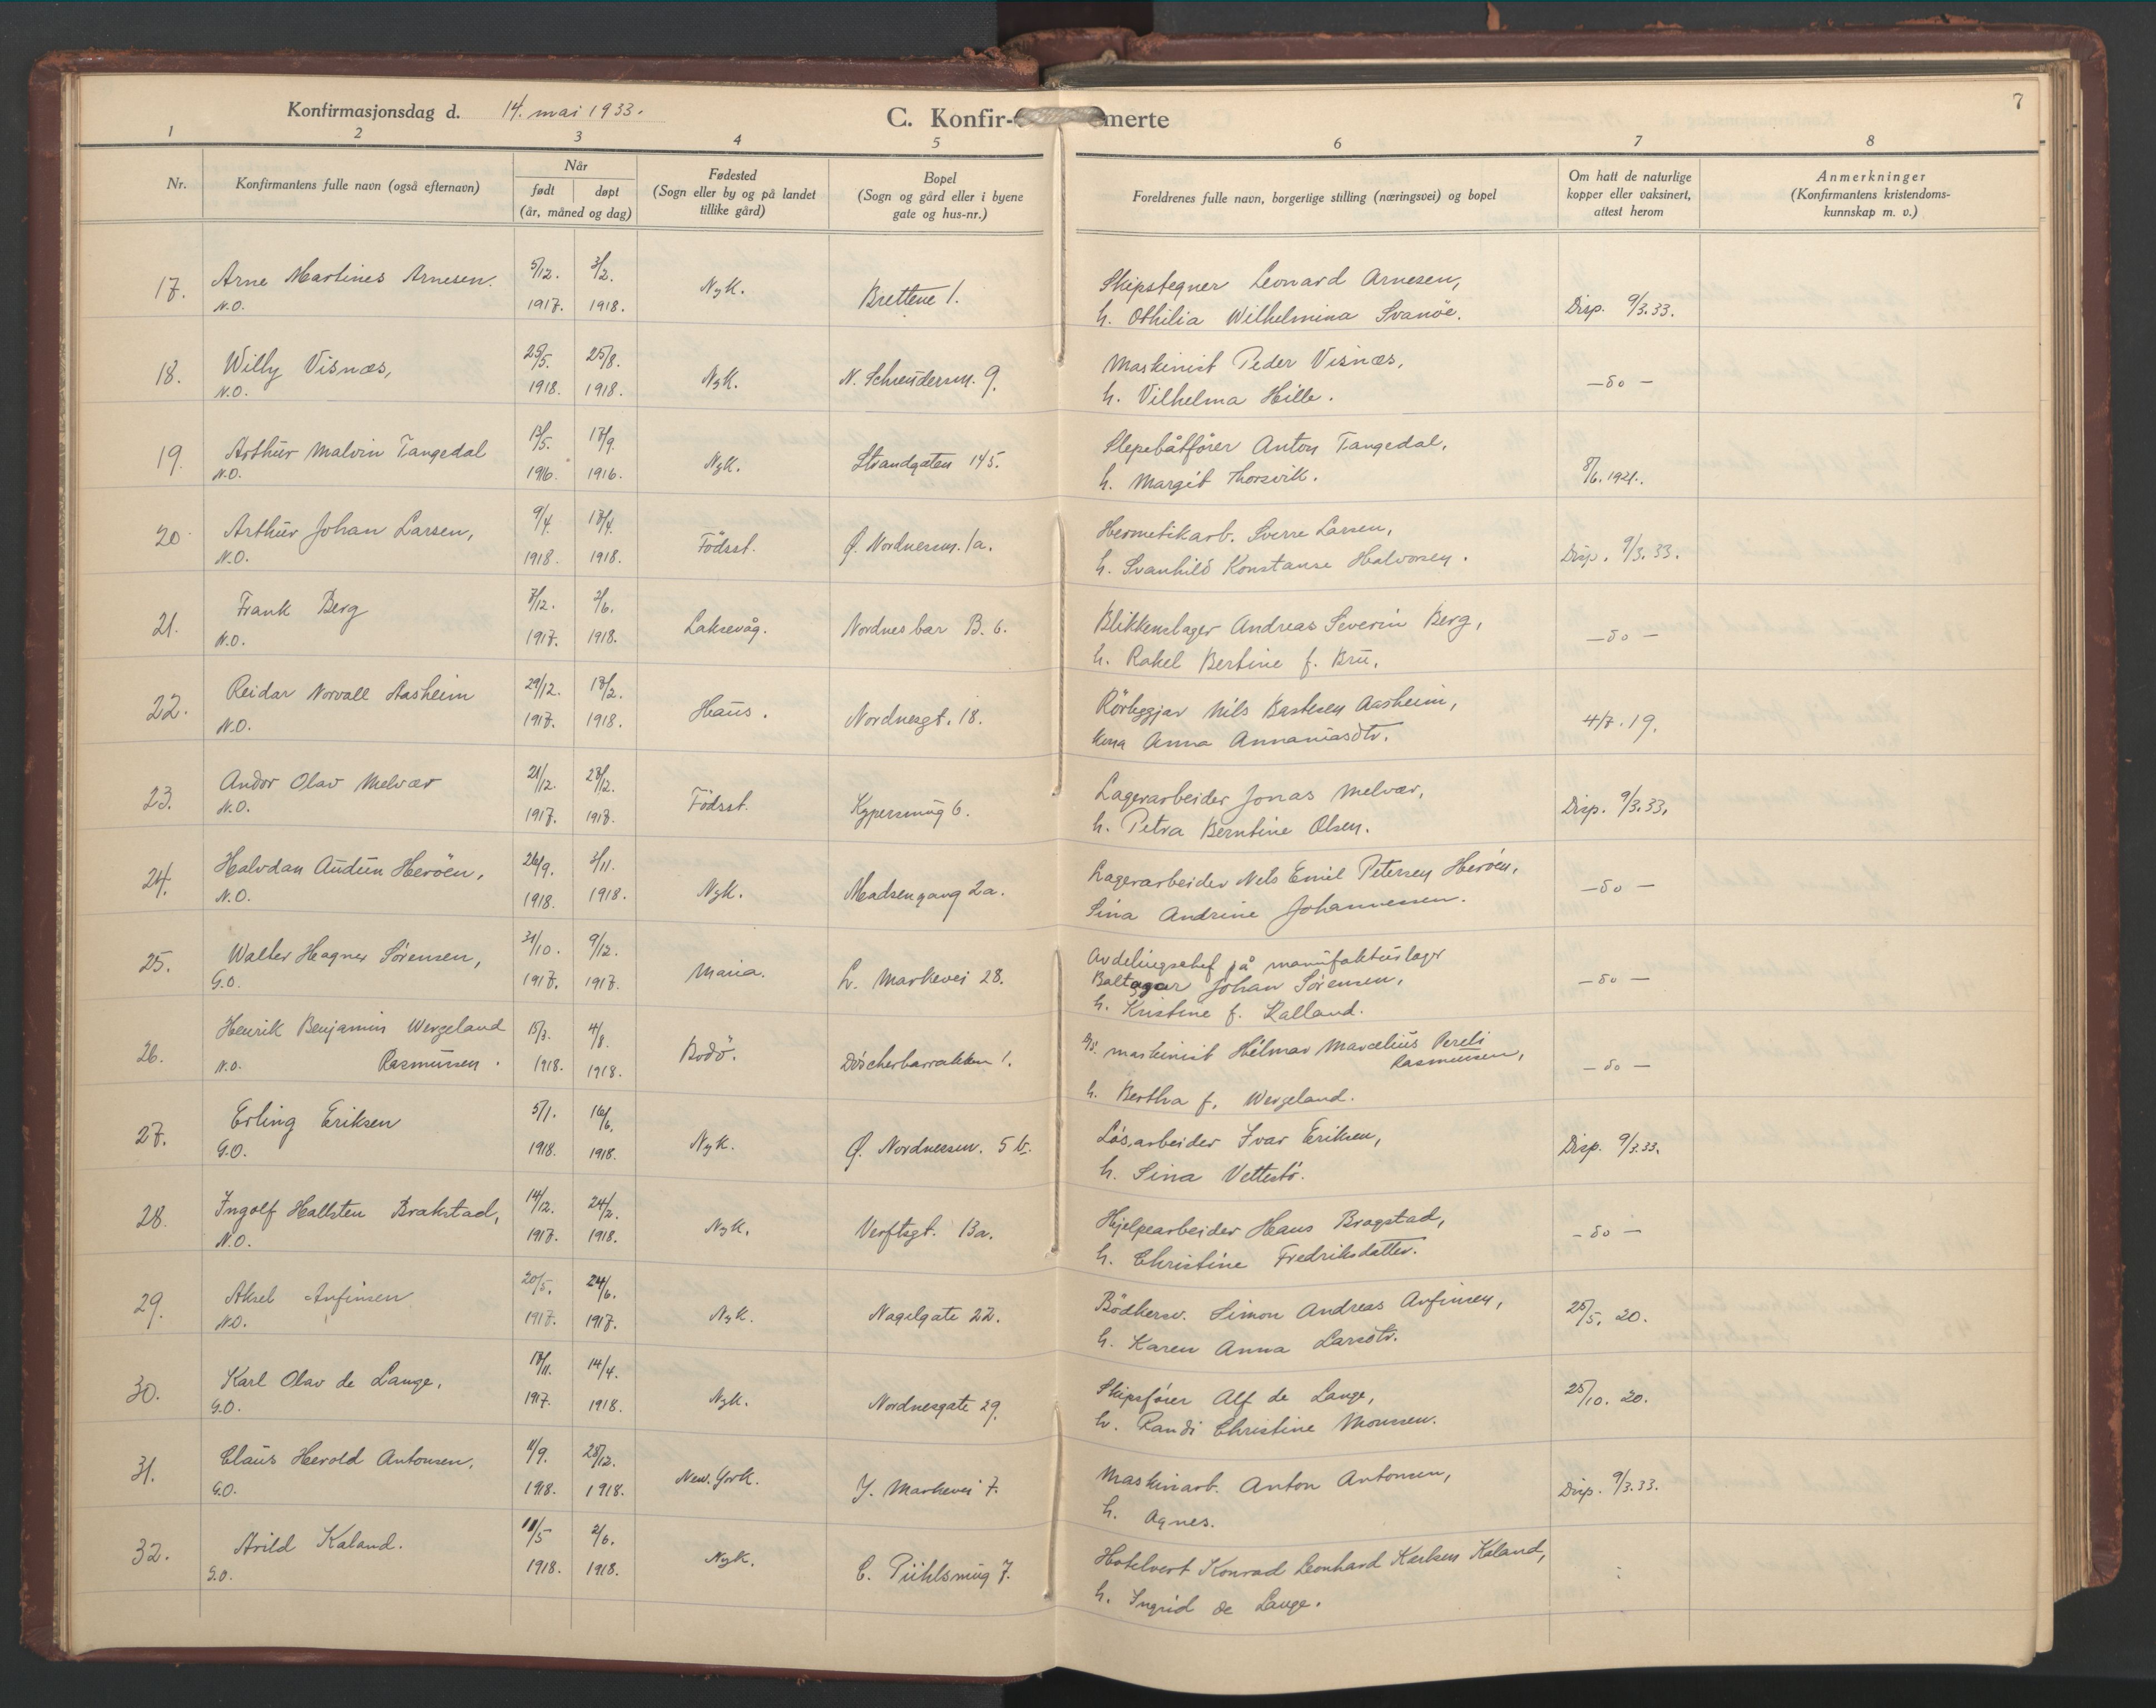 Konfirmasjonsdag d. 14. mai 1933.
C. Konfir- merte
7
1 2 3 4 5 6 7 8
Nr.
Konfirmantens fulle navn (også efternavn)
Når
født døpt
(år, måned og dag)
Fødested
(Sogn eller by og på landet
tillike gård)
Bopel
(Sogn og gård eller i byene
gate og hus-nr.)
Foreldrenes fulle navn, borgerlige stilling (næringsvei) og bopel
Om hatt de naturlige
kopper eller vaksinert,
attest herom
Anmerkninger
(Konfirmantens kristendoms-
kunnskap m. v.)
17. Arne Martines Arnesen. 5/12. 3/2. Nyk. Brettene 1. Skipstegner Leonard Arnesen,
N.O. 1917. 1918. h. Othilia Wilhelmina Svanöe. Disp. 9/3.33.
18. Willy Visnæs, 25/5. 25/8. Nyk. N. Schreudersm. 9. Maskinist Peder Visnæs,
N.O. 1918. 1918. h. Vilhelma Hille. - do -
19. Arthur Malvin Tangedal 13/5. 17/9. Nyk. Strandgaten 145. Slepebåtfører Anton Tangedal,
N.O. 1916. 1916. h. Margit Thorsvik. 8/6.1921.
20. Arthur Johan Larsen, 9/4. 17/4. Födsst. Ø. Nordnessm. 1a. Hermetikarb. Sverre Larsen,
N.O. 1918. 1918. h. Svanhild Konstanse Halvorsen. Disp. 9/3.33.
21. Frank Berg 7/12. 2/6. Laksevåg. Nordnesbar B. 6. Blikkenslager Andreas Severin Berg,
N.O. 1917. 1918. h. Rakel Bertine f. Bru. - do -
22. Reidar Norvall Aasheim 29/12. 17/2. Haus. Nordnesgt. 18. Rörleggjar Nils Bastesen Aasheim,
N.O. 1917. 1918. kona Anna Annaniasdtr. 4/7.19.
23. Andor Olav Melvær 21/12. 27/12. Födsst. Kypersmug 6. Lagerarbeider Jonas Melvær,
N.O. 1917. 1917. h. Petra Berntine Olsen. Disp. 9/3.33.
24. Halvdan Audun Heröen, 26/9. 3/11. Nyk. Madsengang 2a. Lagerarbeider Nils Emil Petersen Heröen,
N.O. 1918. 1918. Sina Andrine Johannessen. - do -
25. Walter Hagner Sørensen, 31/10. 9/12. Maria. L. Markevei 28. Avdelingschef på manufakturlager
G.O. 1917. 1917. Baltazar Johan Sørensen, - do -
h. Kristine f. Kalland.
26. Henrik Benjamin Wergeland 15/3. 4/8. Bodö. Döscherbarrakken 1. maskinist Hilmar Marcelius Pereli
N.O. Rasmussen. 1918. 1918. Rasmussen, - do -
h. Bertha f. Wergeland.
27. Erling Eriksen 5/1. 16/6. Nyk. Ø. Nordnessm. 5 b. Lösarbeider Ivar Eriksen,
G.O. 1918. 1918. h. Sina Vettestö. Disp. 9/3.33.
28. Ingolf Hallsten Brakstad, 14/12. 24/2. Nyk. Verftsgt. 13a. Hjelpearbeider Hans Bragstad,
N.O. 1917. 1918. h. Christine Fredriksdatter. - do -
29. Aksel Anfinsen 20/5. 24/6. Nyk. Nagelgate 22. Bödkersv. Simon Andreas Anfinsen,
N.O. 1917. 1917. h. Karen Anna Larsdtr. 25/5. 20.
30. Karl Olav de Lange, 17/11. 14/4. Nyk. Nordnesgate 29. Skipsfører Alf de Lange,
G.O. 1917. 1918. h. Randi Christine Monssen. 25/10. 20.
31. Claus Herold Antonsen, 11/9. 28/12. New. York. Y. Markevei 7. Maskinarb. Anton Antonsen,
G.O. 1918. 1918. h. Agnes. Disp. 9/3.33.
32. Arild Kaland. 11/5 2/6. Nyk. C. Pihlsmug 7. Hotelvert Konrad Leonhard Karlsen Kaland,
G.O. 1918. 1918. h. Ingrid de Lange.